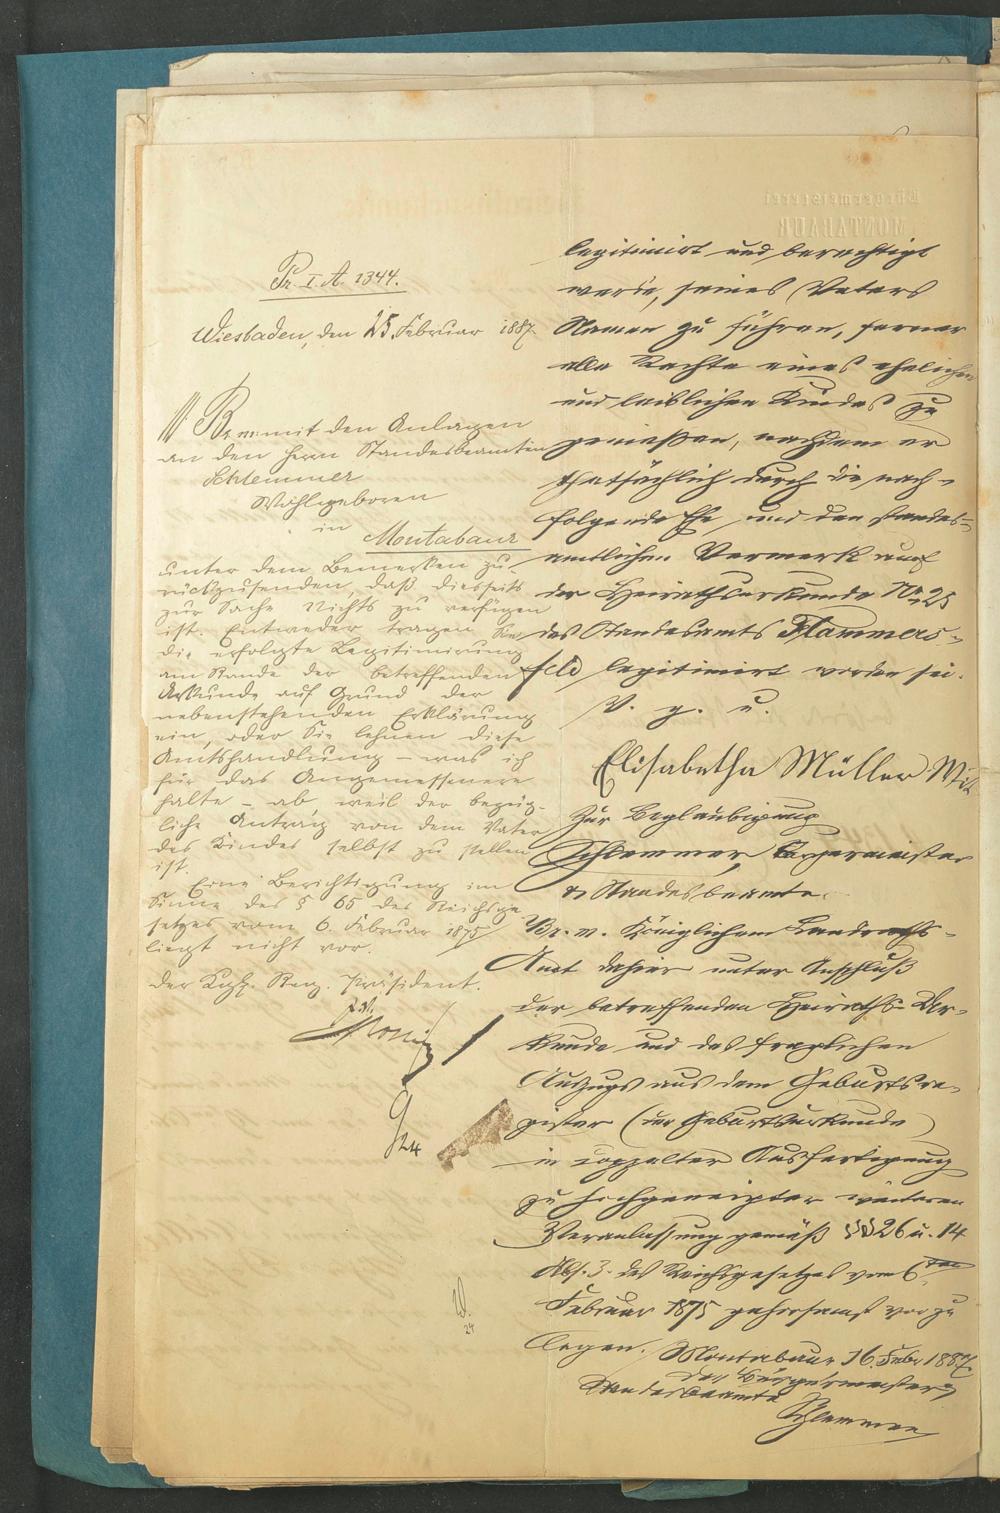 Pr. I. A. 1344.
Wiesbaden, den 25 Februar 1887.
Br. m. mit den Anlagen
an den Herrn Standesbeamten
Schlemmer
Wohlgeboren
in
Montabaur
unter dem Bemerken zu-
rückzusenden, daß diesseits
zur Sache Nichts zu verfügen
ist. Entweder tragen Sie
die erfolgte Legitimirung
am Rande der betreffenden
Urkunde auf Grund der
nebenstehenden Erklärung
ein, oder Sie lehnen diese
Amtshandlung – was ich
für das Angemessenere
halte – ab, weil der bezüg-
liche Antrag von dem Vater
des Kindes selbst zu stellen
ist.
Eine Berichtigung im
Sinne des § 65 des Reichsge-
setzes vom 6. Februar 1875
liegt nicht vor.
Der Kgl. Reg. Präsident.
24
24
legitimirt und berechtigt
werde, seines Vaters
Namen zu führen, ferner
alle Rechte eines ehelichen
und leiblichen Kindes zu
genießen, nachdem er
thatsächlich durch die nach-
folgende Ehe und den standes-
amtlichen Vermerk auf
der Heirathsurkunde No 25
des Standesamts Flammers-
feld legitimirt worden sei.
V. g. u.
Elisabetha Müller
Zur Beglaubigung
Schlemmer, Bürgermeister
& Standesbeamte.
Br. m. Königlichem Landraths-
Amt dahier unter Anschluß
der betreffenden Heiraths-Ur-
kunde und des fraglichen
Auszugs aus dem Geburtsre-
gister (der Geburtsurkunde)
in doppelter Ausfertigung
zu hochgeneigter weiteren
Veranlassung gemäß §§ 26 u. 14
Abs. 3. des Reichsgesetzes vom 6ten
Februar 1875 gehorsamst vorzu
legen.
Montabaur 16. Febr 1887
Der Bürgermeister
Standesbeamte
Schlemmer
Bürgermeisterei
MONTABAUR